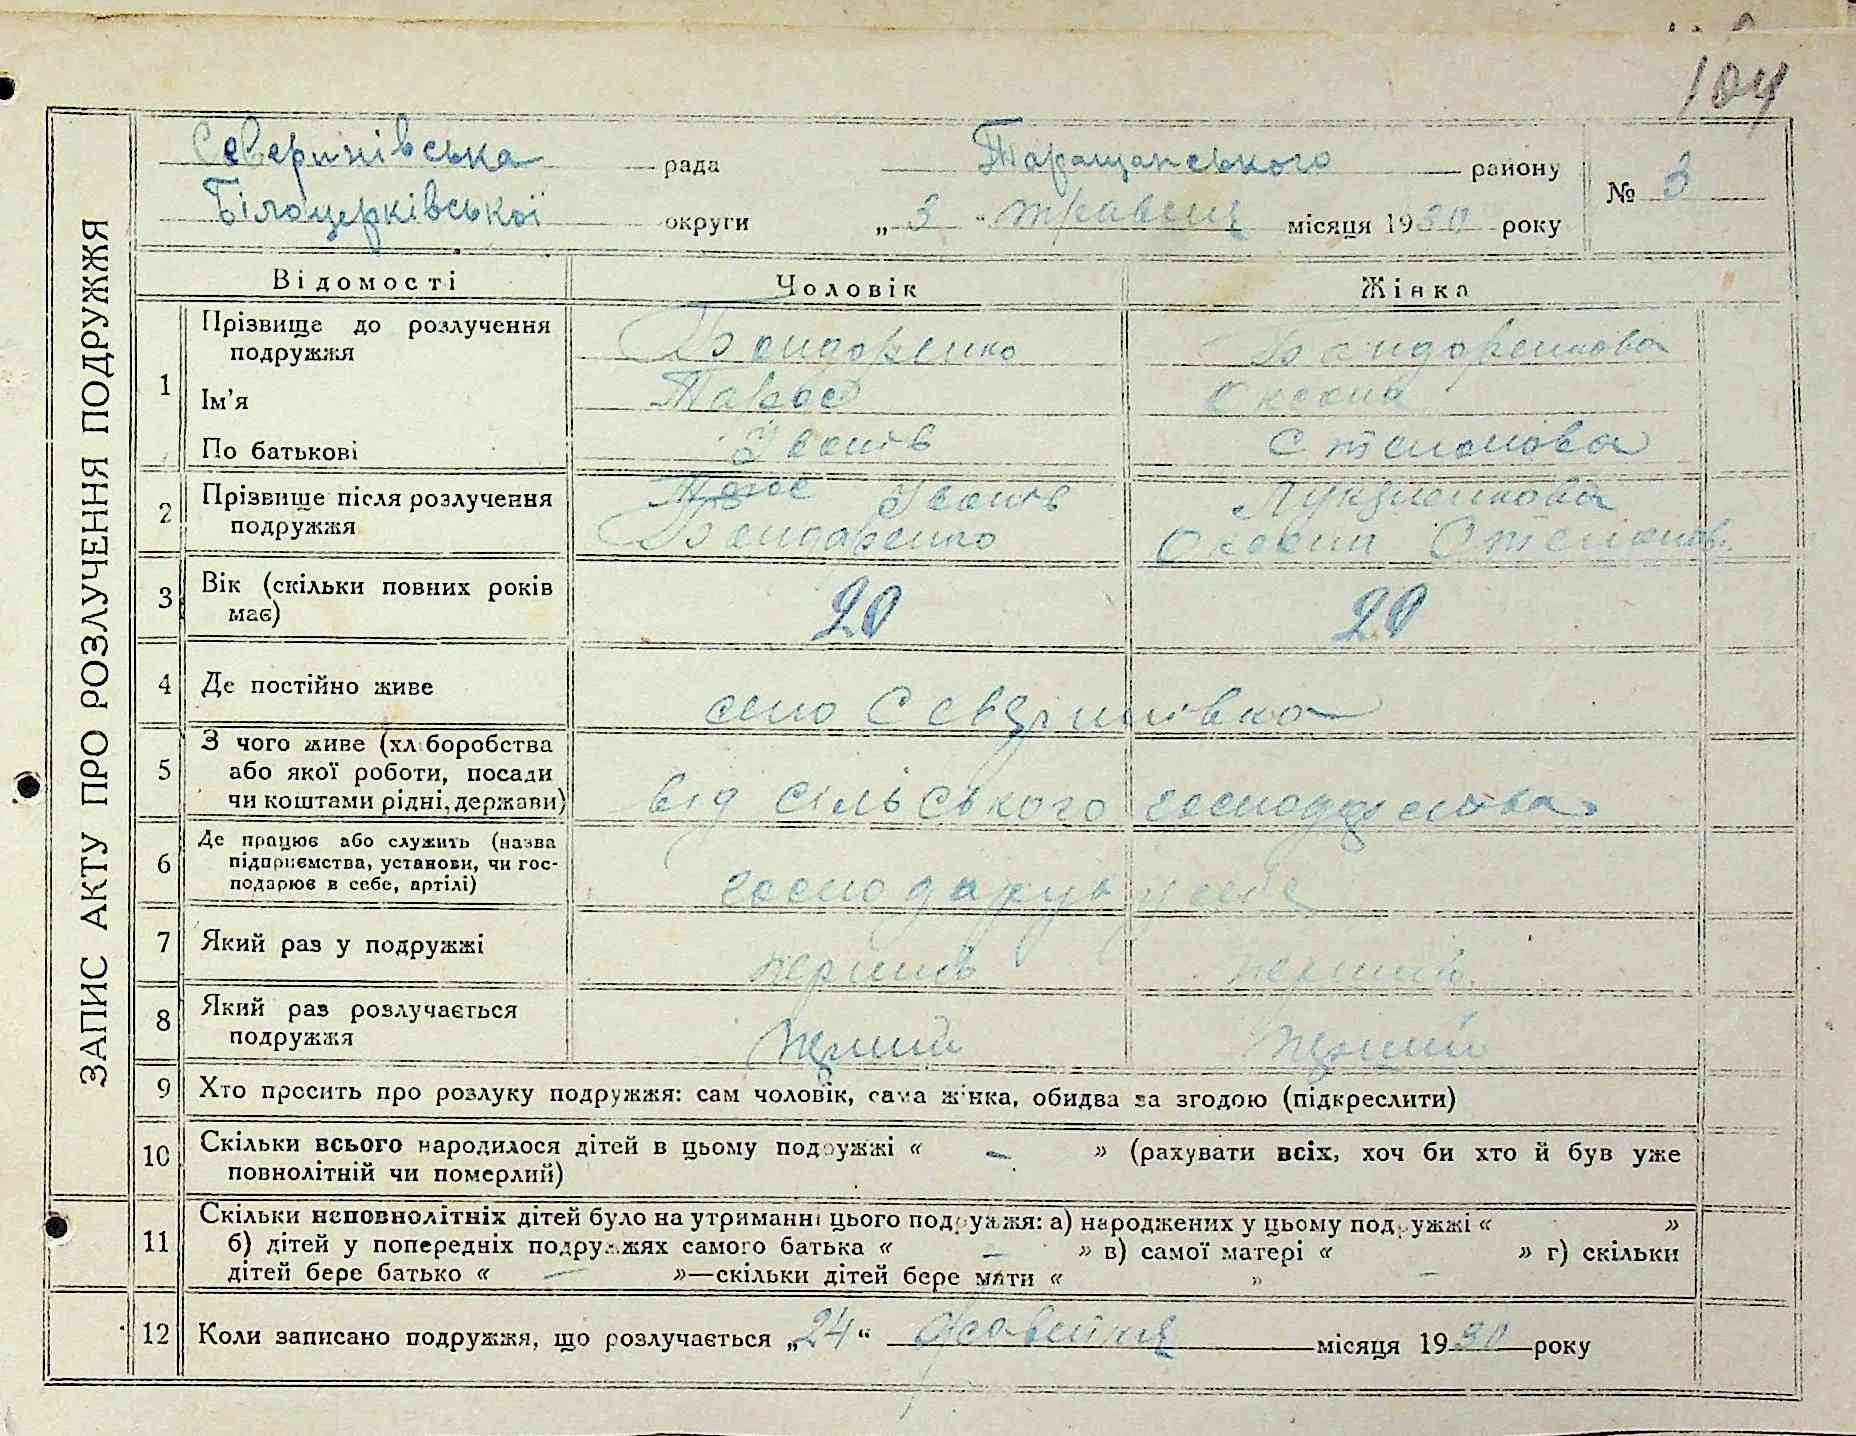 104
Северинівська рада Таращанського району
№ 3
Білоцерківської округи „ 3 “ травня місяця 1930 року
ЗАПИС АКТУ ПРО РОЗЛУЧЕННЯ ПОДРУЖЖЯ
Відомості Чоловік Жінка
1 Прізвище до розлучення подружжя Бондаренко Бондаренкова
Ім'я Тарас Оксана
По батькові Іванів Степанова
2 Прізвище після розлучення Тарас Іванів
подружжя Бондаренко Оксани Степанов.
3 Вік (скільки повних років
має) 20 20
4 Де постійно живе село Северинівка
5 З чого живе (хліборобства
або якої роботи, посади
чи коштами рідні, держави) від сільського господарства
6 Де працює або служить (назва
підприємства, установи, чи гос-
подарює в себе, артілі) господарує у себе
7 Який раз у подружжі перший перший
8 Який раз розлучається
подружжя перший перший
9 Хто просить про розлуку подружжя: сам чоловік, сама жінка, обидва за згодою (підкреслити)
10 Скільки всього народилося дітей в цьому подружжі « – » (рахувати всіх, хоч би хто й був уже
повнолітній чи померлий)
11 Скільки неповнолітніх дітей було на утриманні цього подружжя: а) народжених у цьому подружжі « »
б) дітей у попередніх подружжях самого батька « – » в) самої матері « » г) скільки
дітей бере батько « – »—скільки дітей бере мати « – »
12 Коли записано подружжя, що розлучається „24“ місяця 1930 року